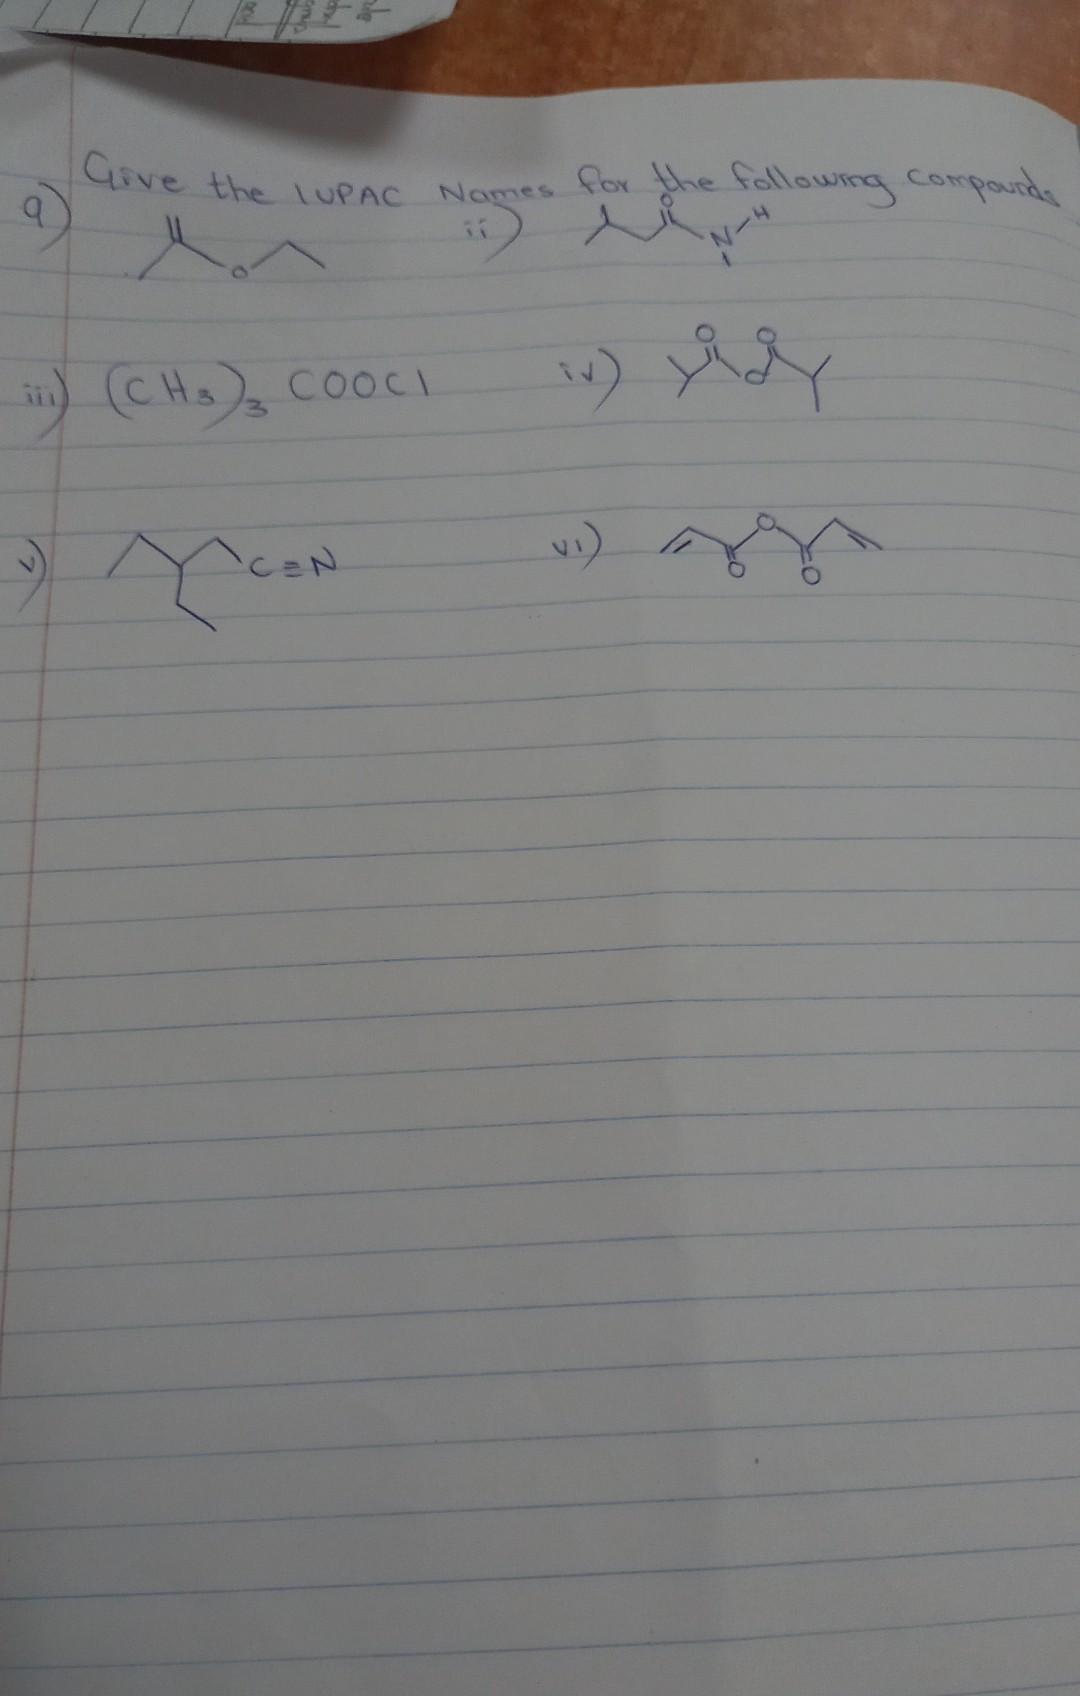 Give the IUPAC Names for the following compounds
a) ii)
O
O N H
iii) (CH3)3 COOCl iv)
O O
O
v) C≡N vi)
O
O O